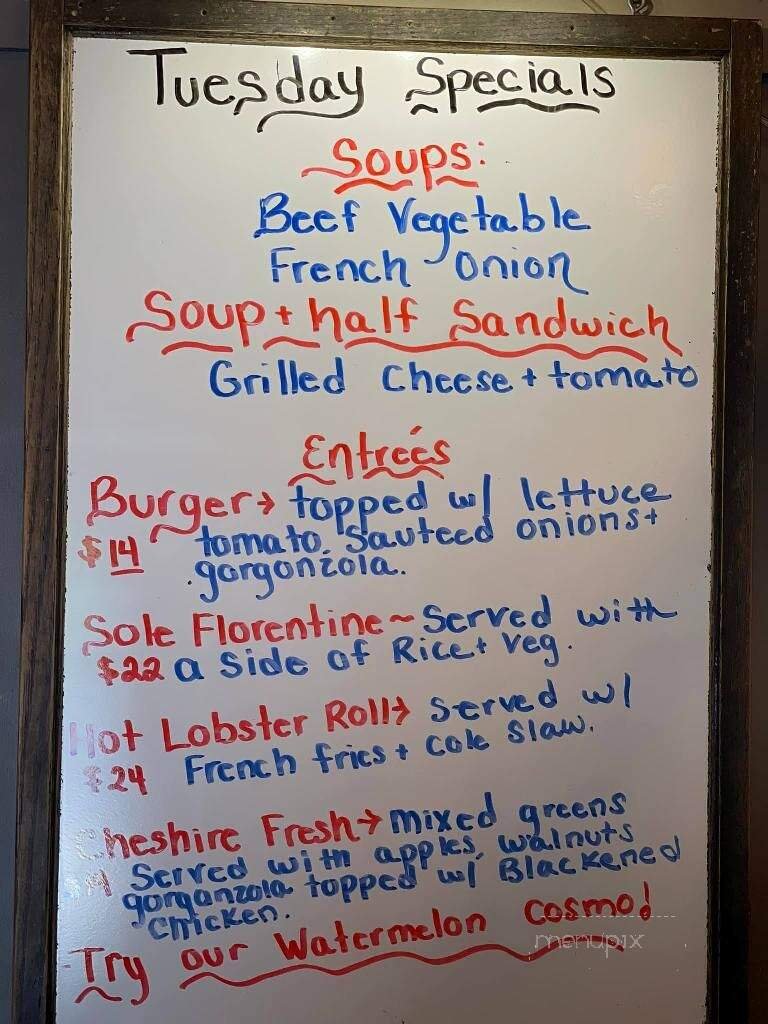 Tuesday Specials
Soups:
Beef Vegetable
French Onion
Soup + half Sandwich
Grilled Cheese + tomato
Entreés
Burger → topped w/ lettuce
$14 tomato, Sauteed onions +
gorgonzola.
Sole Florentine ~ Served with
$22 a Side of Rice + Veg.
Hot Lobster Roll → Served w/
$24 French fries + Cole Slaw.
Cheshire Fresh → mixed greens
Served with apples, walnuts
gorgonzola topped w/ Blackened
Chicken.
Try our Watermelon Cosmo!
menupix